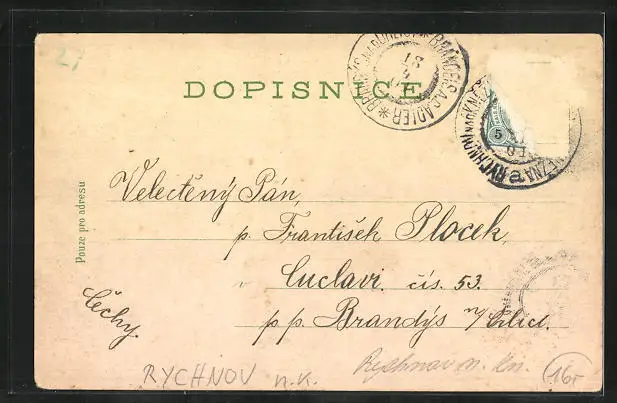 27
DOPISNICE
BRANDÝS NAD ORLICÍ * BRANDEIS A.D. ADLER *
18
RYCHNOV NAD KNĚŽNOU
5
Pouze pro adresu
Velectěný Pán,
p. František Plocek,
Cuclavi. čís. 53.
p p. Brandýs n/Orlicí.
Čechy.
RYCHNOV n.K.
Rychnov n. Kn.
16,-